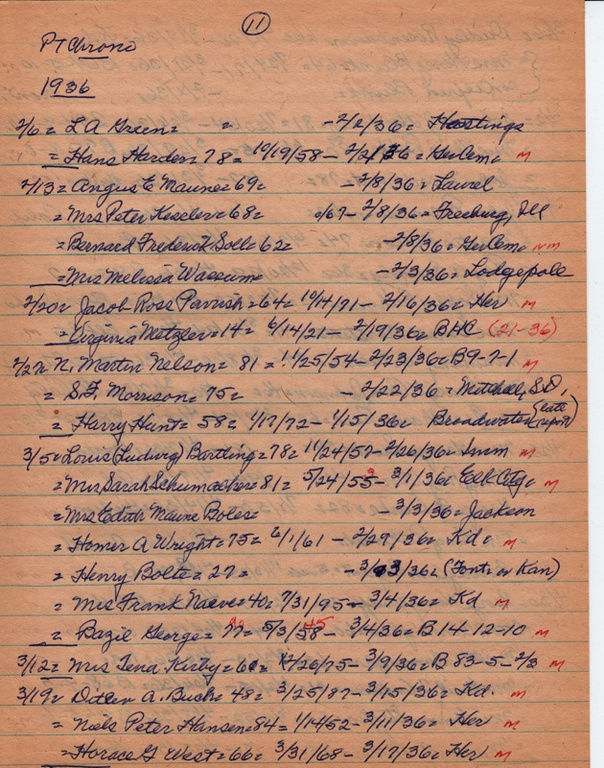 11
Pt Chrono
1936
2/6 = L A Green = = - 2/2/36 = Hastings
= Hans Harder = 78 = 10/19/58 - 2/2/36 = GerCem = M
2/13 = Angus E Maune = 69 = - 2/8/36 = Laurel
= Mrs Peter Keseler = 68 = /67 - 2/8/36 = Freeburg, Ill
= Bernard Frederick Solle = 62 = - 2/8/36 = GerCem =
= Mrs Melissa Wassum = - 2/3/36 = Lodgepole
2/20 = Jacob Ross Parrish = 64 = 10/14/71 - 2/16/36 = Her M
= Virginia Metzler = 14 = 6/14/21 - 2/19/36 = BHC (21-36)
2/27 = N. Martin Nelson = 81 = 11/25/54 - 2/23/36 = B9-7-1 M
= S.F. Morrison = 75 = - 2/22/36 = Mitchell, S.D.
= Harry Hunt = 58 = 1/17/72 - 1/15/36 = Broadwater (late report)
3/5 = Louis (Ludwig) Bartling = 78 = 11/24/57 - 2/26/36 = Imm M
= Mrs Sarah Schumacher = 81 = 5/24/55 9 - 3/1/36 = Elk City = M
= Mrs Edith Maune Boles = - 3/3/36 = Jackson
= Homer A Wright = 75 = 6/1/61 - 2/29/36 = Kd = M
= Henry Bolte = 27 = - 3/3/36 = (Font = or Kan)
= Mrs Frank Naeve = 40 = 7/31/95 - 3/4/36 = Kd M
= Bazil George = 77 = 5/3/58 45 - 3/4/36 = B 14-12-10 M
3/12 = Mrs Tena Kirby = 60 = 12/26/75 - 3/9/36 = B 83-5-2/3 M
3/19 = Detlev A. Bush = 48 = 3/25/87 - 3/15/36 = Kd. M
= Niels Peter Hansen = 84 = 1/14/52 - 3/11/36 = Her M
= Horace G West = 66 = 3/31/68 - 3/17/36 = Her M